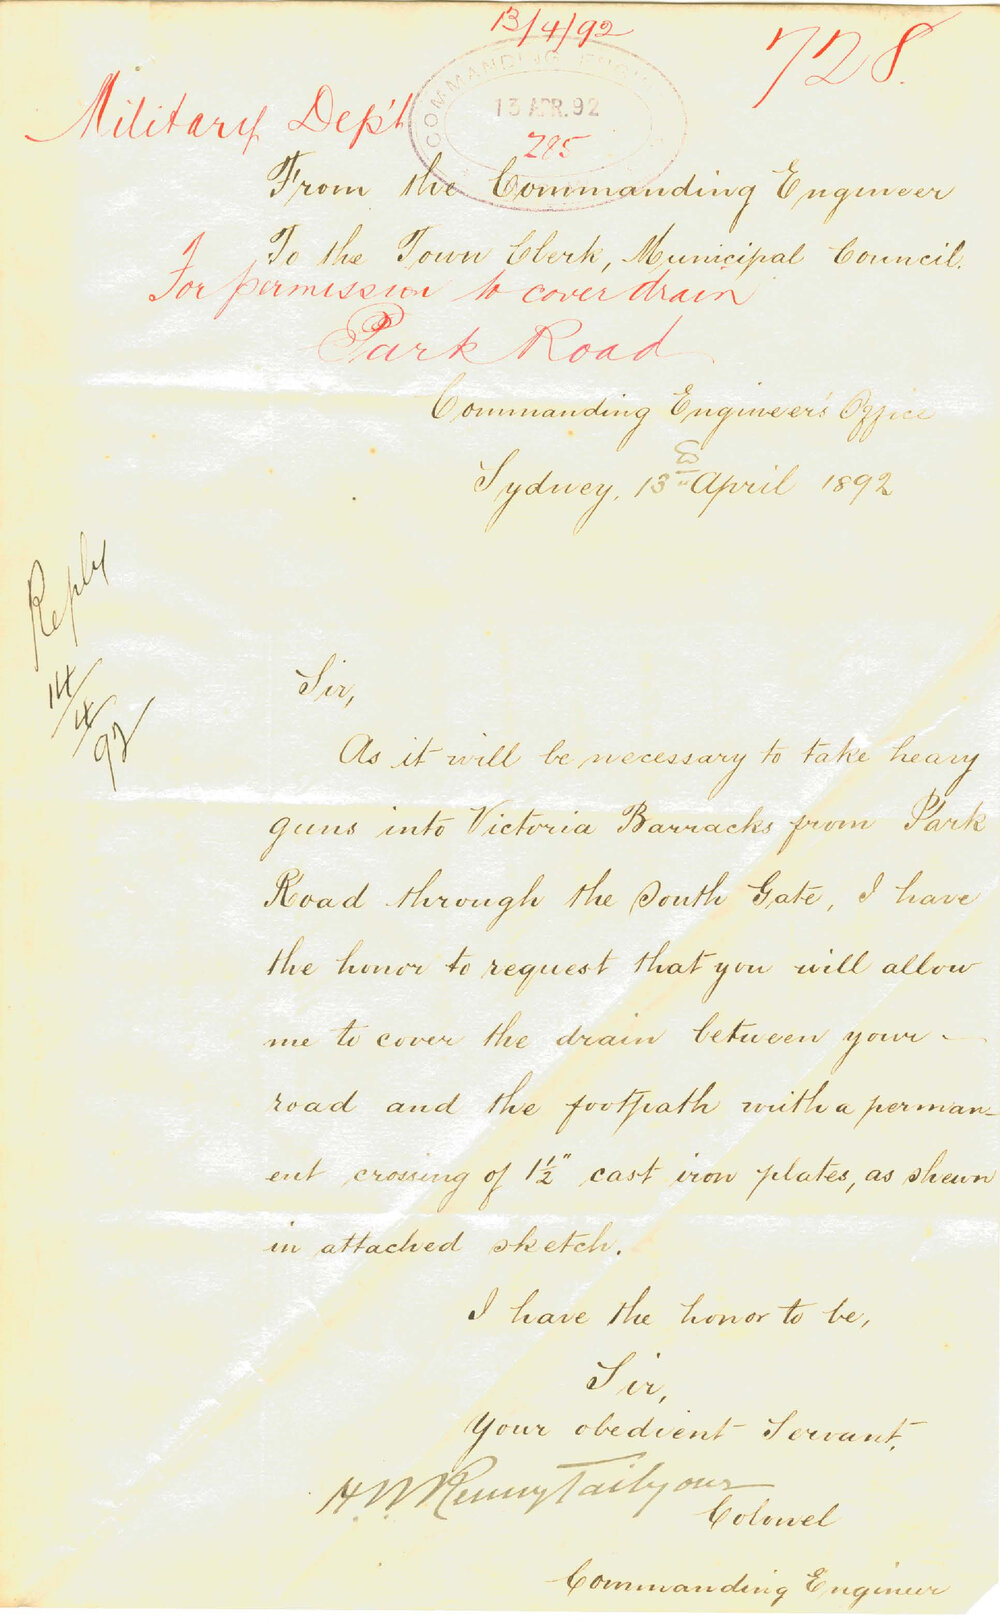 13/4/92
728.
COMMANDING ENGI
13 APR. 92
Military Dep't
From the Commanding Engineer
To the Town Clerk, Municipal Council.
For permission to cover drain
Park Road
Commanding Engineer's Office
Sydney, 13th April 1892
Reply
14/4/92
Sir,
As it will be necessary to take heavy
guns into Victoria Barracks from Park
Road through the South Gate, I have
the honor to request that you will allow
me to cover the drain between your
road and the footpath with a perman-
ent crossing of 1½" cast iron plates, as shewn
in attached sketch.
I have the honor to be,
Sir,
Your obedient Servant,
H W Renny Tailyour
Colonel
Commanding Engineer